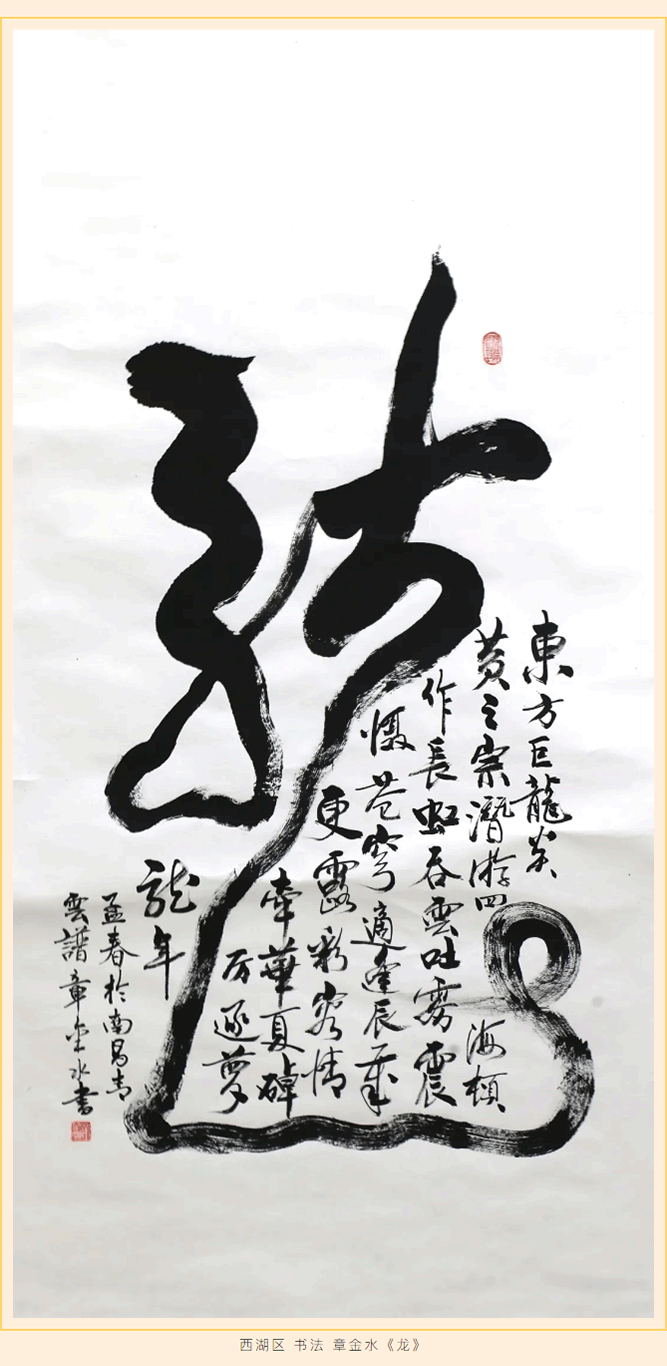 龍
東方巨龍炎
黄之宗潛游四海頓
作長虹吞雲吐霧震
慑苍穹適逢辰
更露彩容情
牽華夏踔
厉逐夢
龍年
孟春於南昌青
雲譜章金水書
西湖区 书法 章金水《龙》